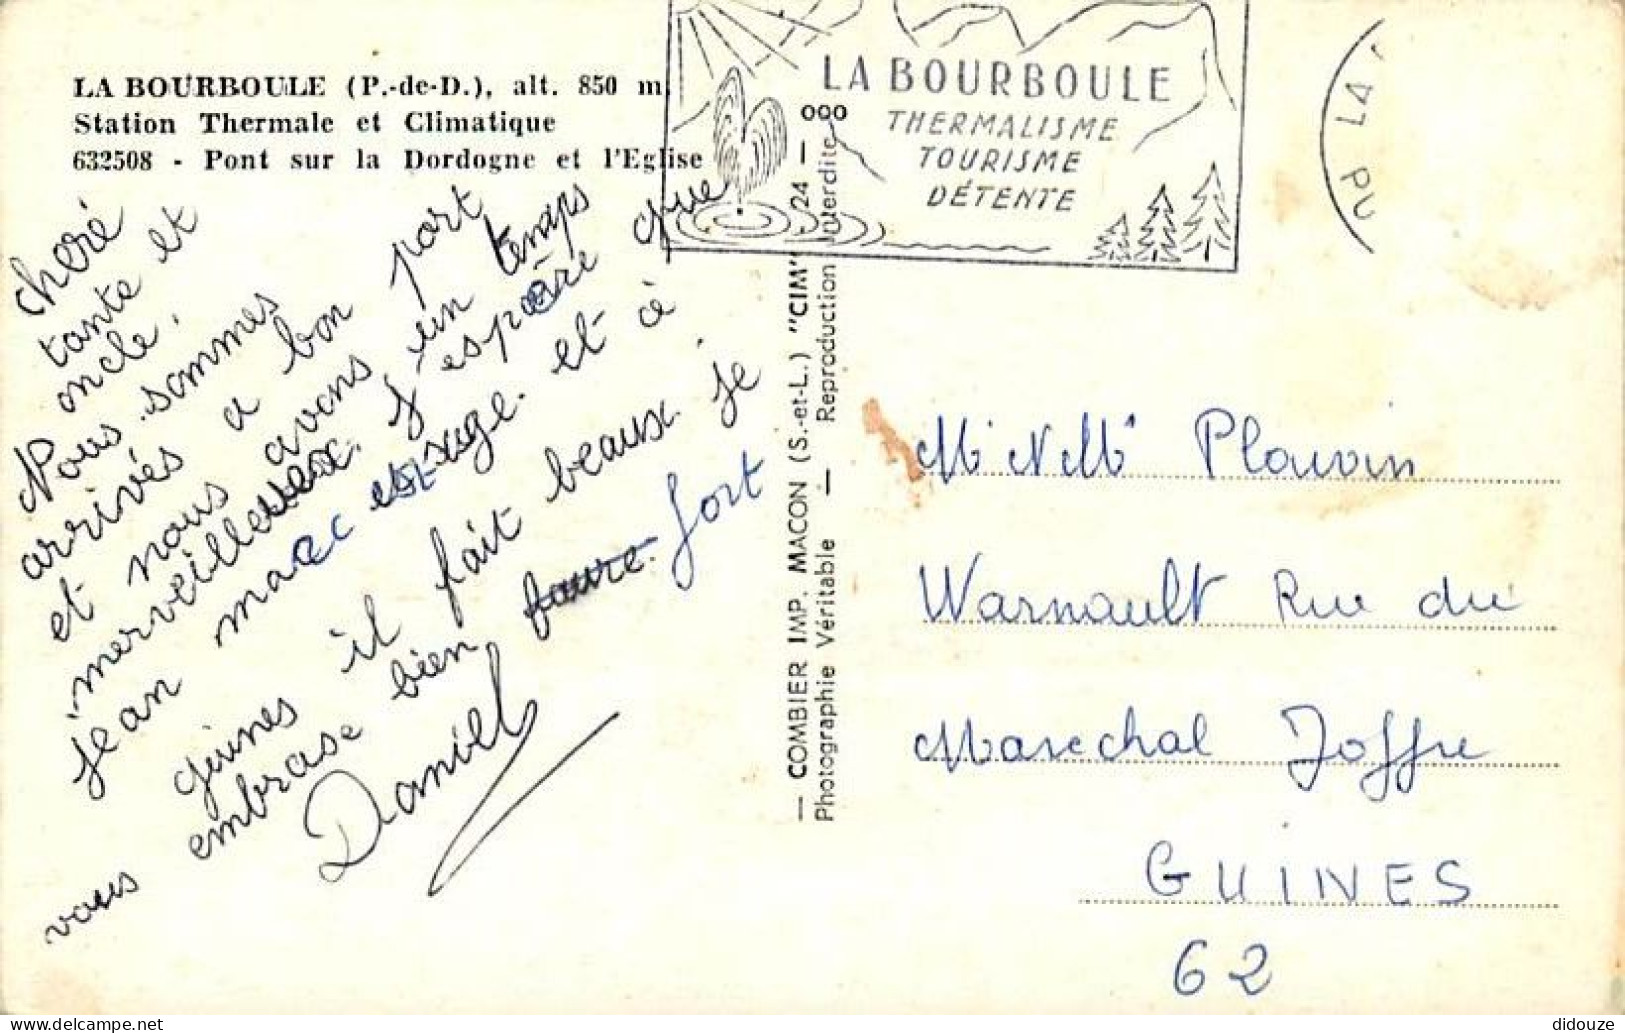 LA BOURBOULE (P.-de-D.), alt. 850 m.
Station Thermale et Climatique
632508 - Pont sur la Dordogne et l'Eglise
cheré
tante et
oncle,
Nous sommes
arrivés a bon port
et nous avons un temps
merveilleux. J'espère que
jean mac est sage. et à
guines il fait beaux je
vous embrase bien faure fort
Daniel
LA BOURBOULE
THERMALISME
TOURISME
DÉTENTE
LA
PU
— COMBIER IMP. MACON (S.-et-L.) "CIM" 24 — ooo
Photographie Véritable — Reproduction Interdite
Plauvin
Warnault Rue du
Marechal Joffre
GUINES
62
didouze @ delcampe.net